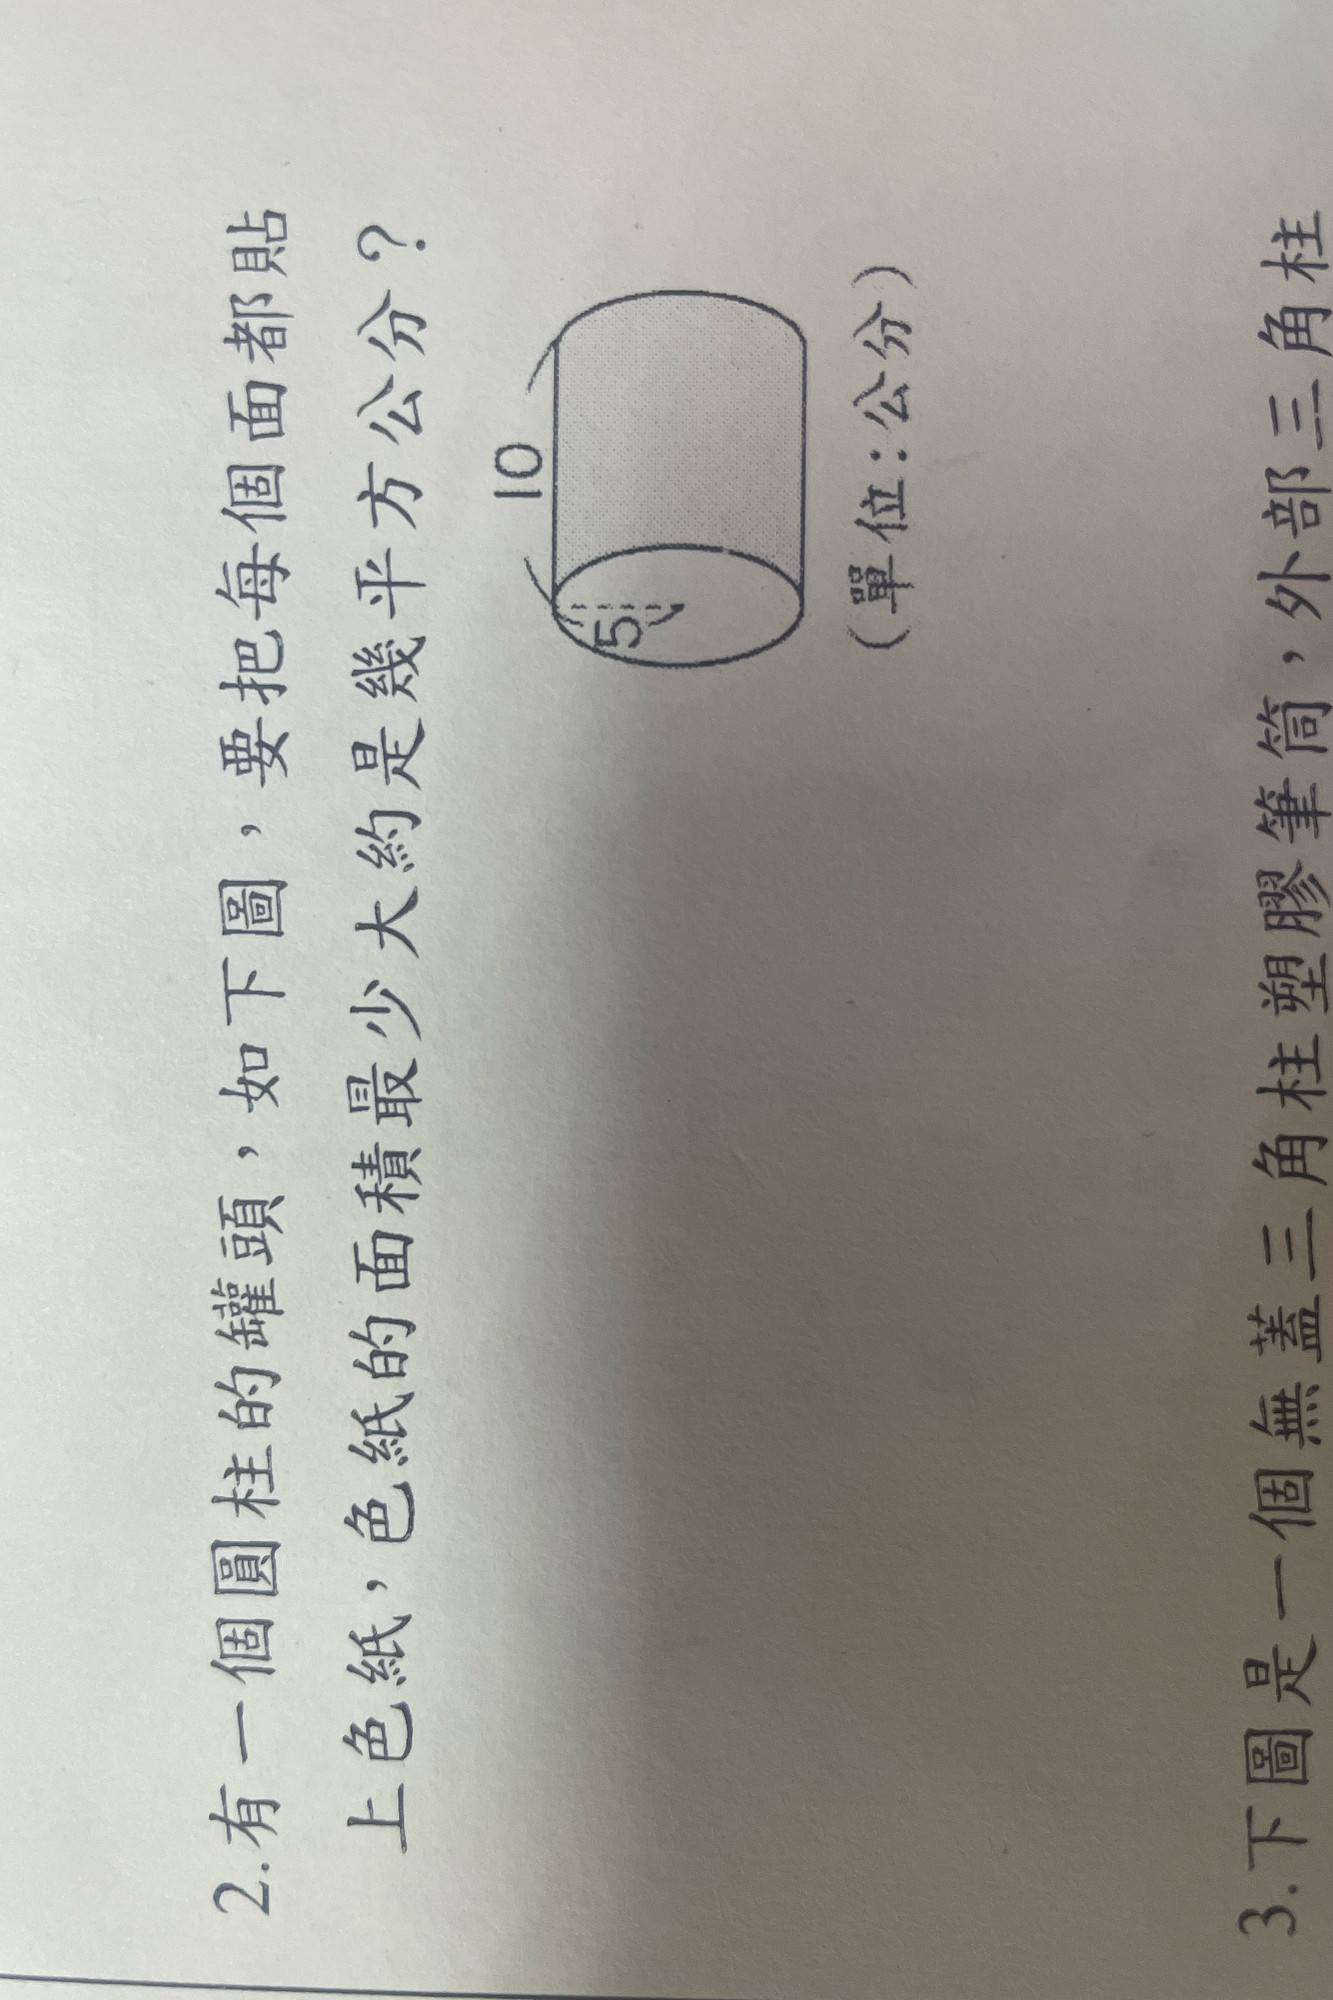 2.有一個圓柱的罐頭，如下圖，要把每個面都貼
上色紙，色紙的面積最少大約是幾平方公分？
10
5
(單位:公分)
3.下圖是一個無蓋三角柱塑膠筆筒，外部三角柱